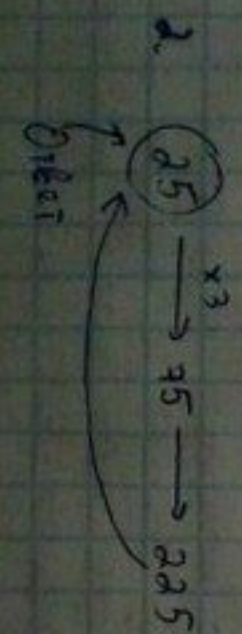 2
×3
25 → 75 → 225
Ответ